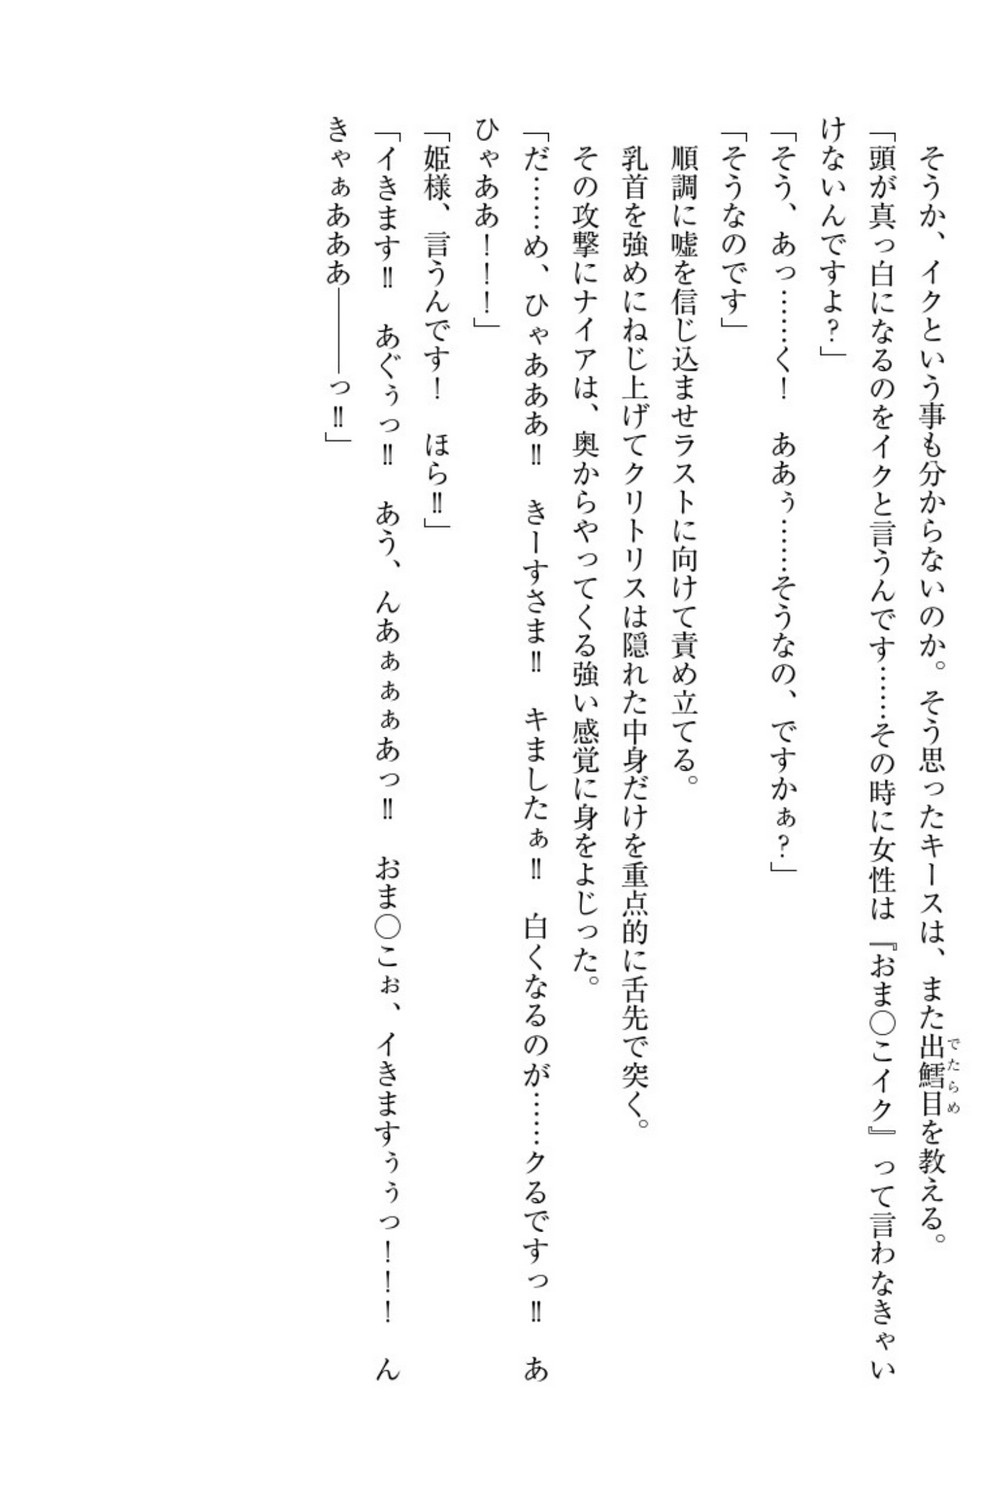 そうか、イクという事も分からないのか。そう思ったキースは、また出鱈目を教える。
でたらめ
「頭が真っ白になるのをイクと言うんです……その時に女性は『おま◯こイク』って言わなきゃい
けないんですよ？」
「そう、あっ……く！　ああぅ……そうなの、ですかぁ？」
「そうなのです」
順調に嘘を信じ込ませラストに向けて責め立てる。
乳首を強めにねじ上げてクリトリスは隠れた中身だけを重点的に舌先で突く。
その攻撃にナイアは、奥からやってくる強い感覚に身をよじった。
「だ……め、ひゃあああ‼　きーすさま‼　キましたぁ‼　白くなるのが……クるですっ‼　あ
ひゃああ！！！」
「姫様、言うんです！　ほら‼」
「イきます‼　あぐぅっ‼　あう、んあぁぁぁあっ‼　おま◯こぉ、イきますぅぅっ！！！　ん
きゃぁあああ――――っ‼」